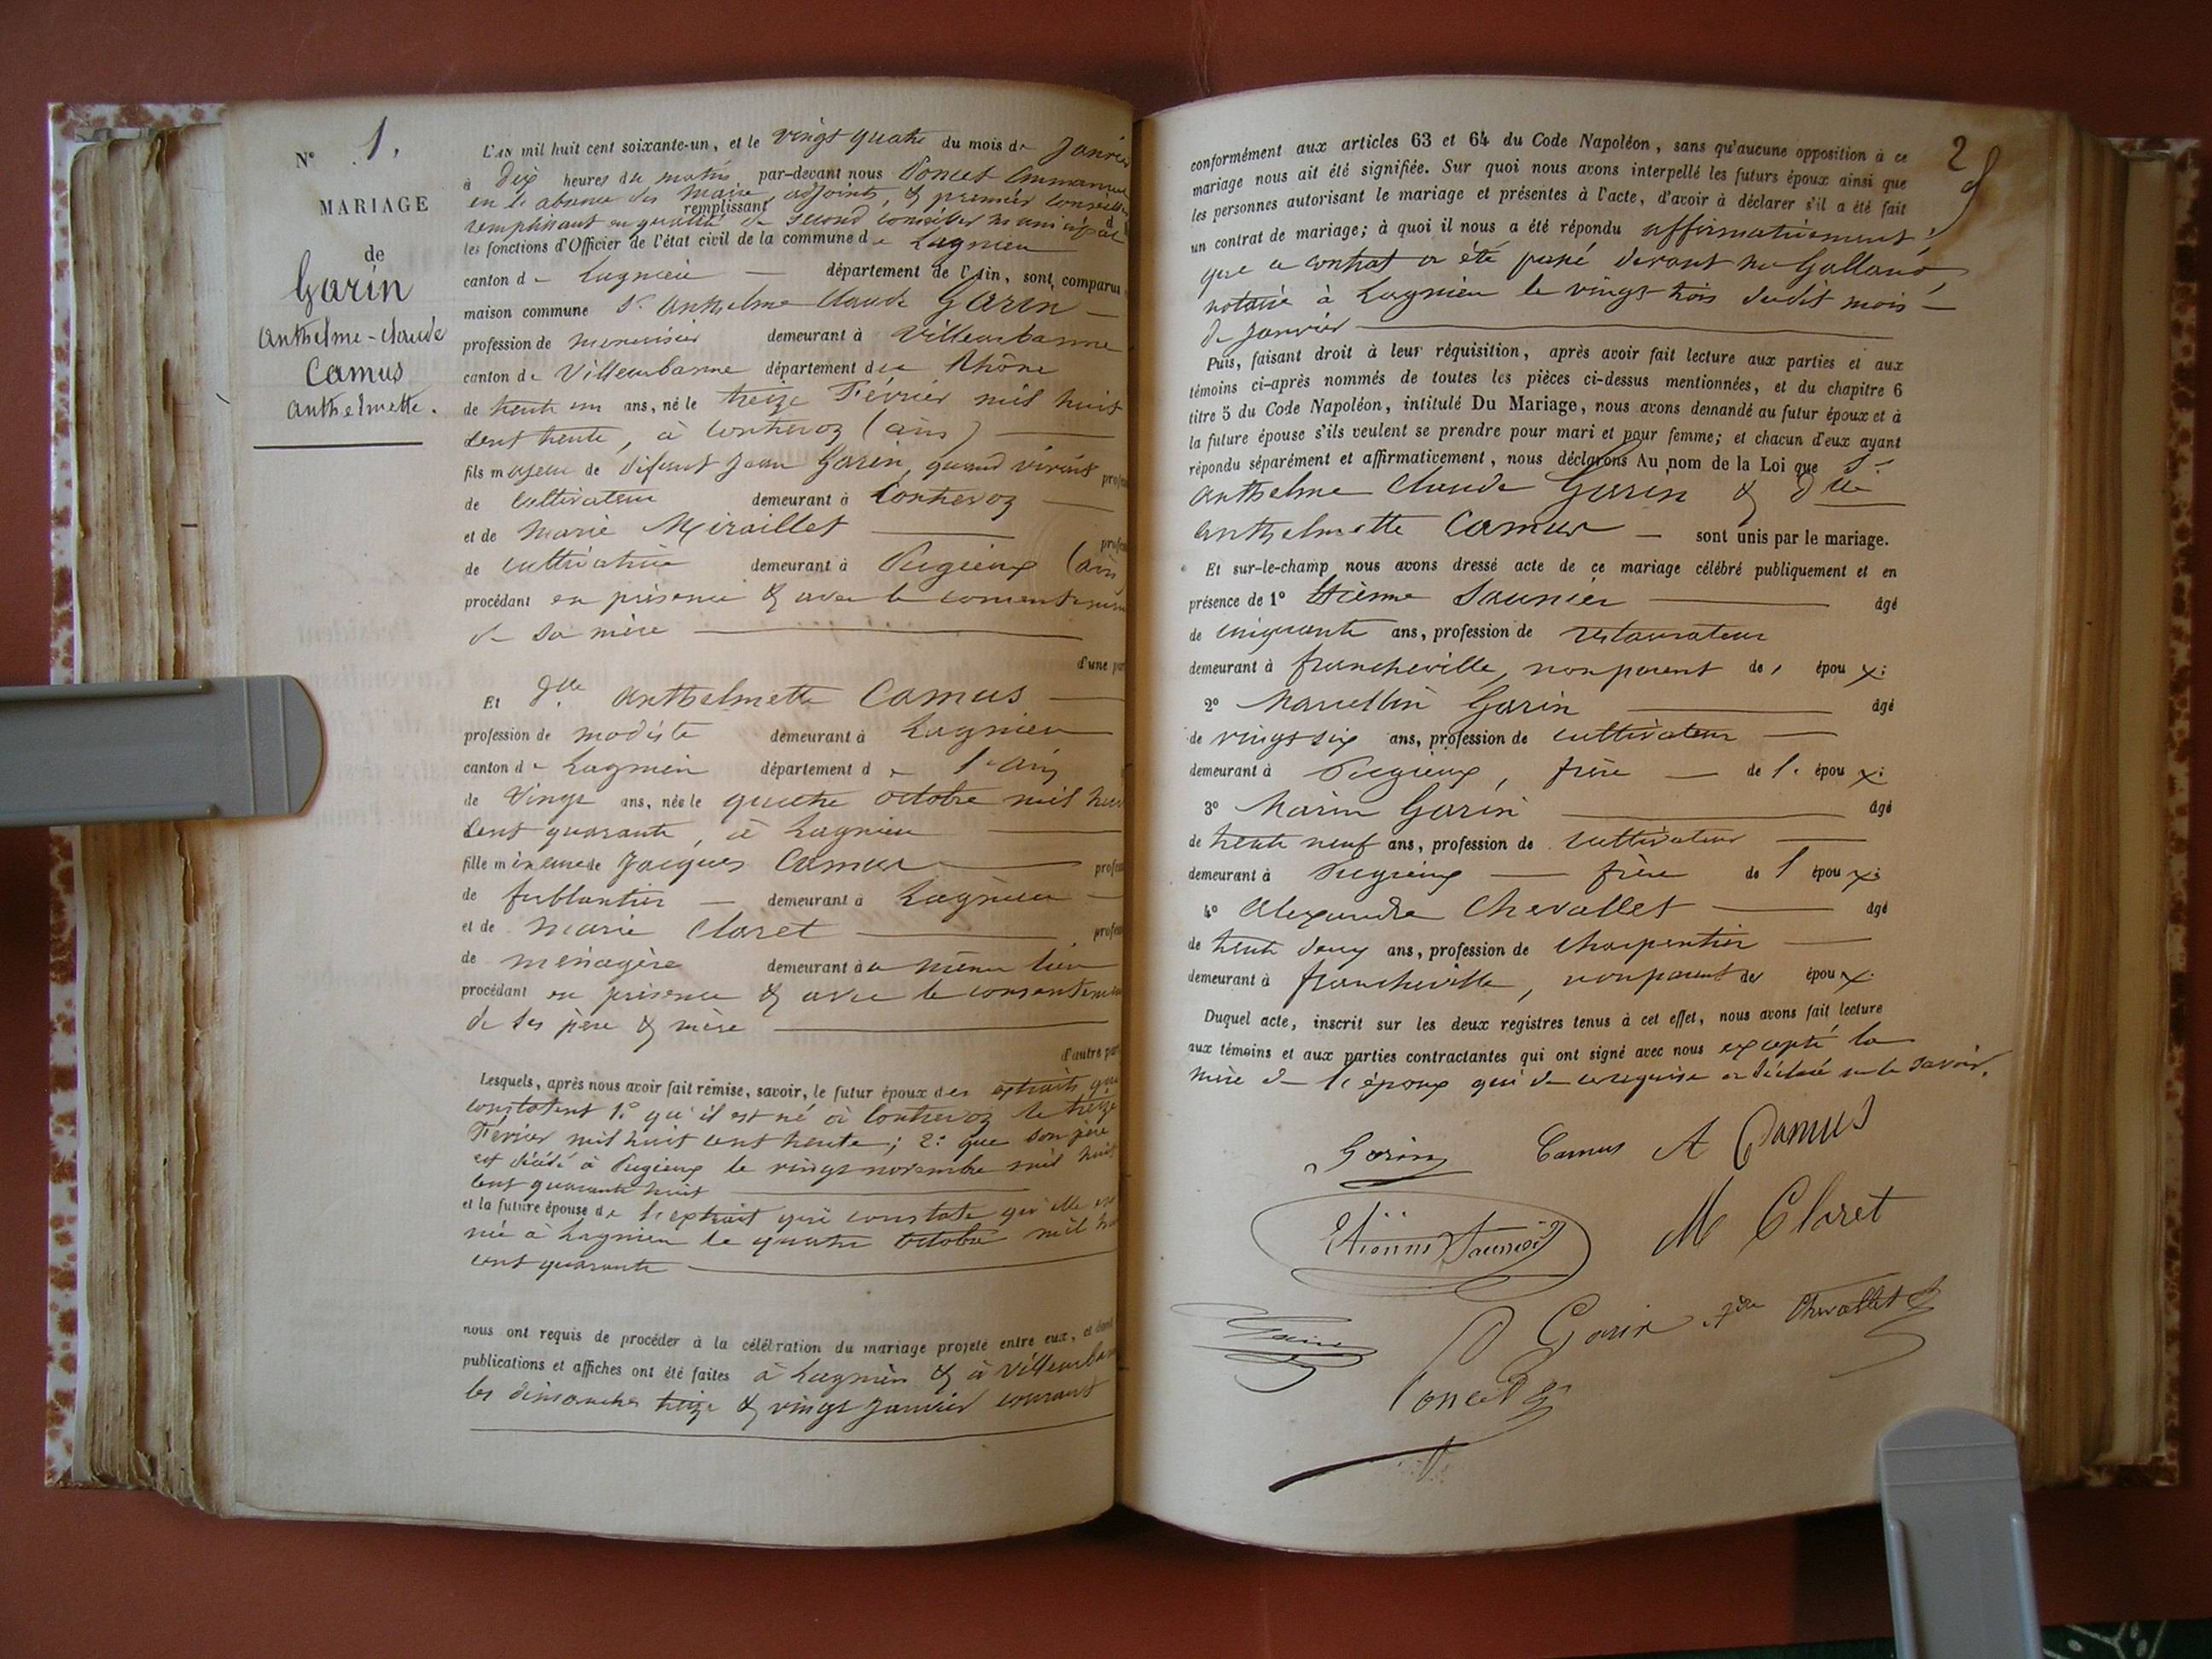 N° 1.
MARIAGE
de
Garin
Anthelme-Claude
Camus
Anthelmette.
L'AN mil huit cent soixante-un, et le vingt quatre du mois de Janvier
à dix heures du matin par-devant nous Poncet Emmanuel
en l'absence des Maire, adjoints, & premier conseiller
remplissant en qualité de second conseiller municipal
remplissant
les fonctions d'Officier de l'état civil de la commune de Lagnieu
canton de Lagnieu — département de l'Ain, sont comparus
maison commune Sr Anthelme Claude Garin —
profession de menuisier demeurant à Villeurbanne
canton de Villeurbanne département du Rhône
de trente un ans, né le treize Février mil huit
cent trente, à Contrevoz (ain)
fils majeur de défunt Jean Garin, quand vivait profes
de cultivateur demeurant à Contrevoz —
et de Marie Miraillet profes
de cultivatrice demeurant à Pugieux (ain
procédant en présence & avec le consentement
de sa mère
d'une par
Et dlle Anthelmette Camus —
profession de modiste demeurant à Lagnieu
canton de Lagnieu département de l'ain
de vingt ans, née le quatre octobre mil huit
cent quarante, à Lagnieu
fille mineure de Jacques Camus profes
de ferblantier — demeurant à Lagnieu —
et de Marie Claret profes
de ménagère demeurant au même lieu
procédant en présence & avec le consentement
de ses père & mère
d'autre part
Lesquels, après nous avoir fait remise, savoir, le futur époux des extraits qui
constatent 1.° qu'il est né à Contrevoz le treize
Février mil huit cent trente; 2.° que son père
est décédé à Pugieux le vingt novembre mil huit
cent quarante huit
et la future épouse de l'extrait qui constate qu'elle est
née à Lagnieu le quatre octobre mil hu
cent quarante
nous ont requis de procéder à la célébration du mariage projeté entre eux, et dont
publications et affiches ont été faites à Lagnieu & à Villeurban
les dimanches treize & vingt Janvier courant
2
conformément aux articles 63 et 64 du Code Napoléon, sans qu'aucune opposition à ce
mariage nous ait été signifiée. Sur quoi nous avons interpellé les futurs époux ainsi que
les personnes autorisant le mariage et présentes à l'acte, d'avoir à déclarer s'il a été fait
un contrat de mariage; à quoi il nous a été répondu affirmativement,
que ce contrat a été passé devant Me Galland
notaire à Lagnieu le vingt-trois dudit mois —
de Janvier
Puis, faisant droit à leur réquisition, après avoir fait lecture aux parties et aux
témoins ci-après nommés de toutes les pièces ci-dessus mentionnées, et du chapitre 6
titre 5 du Code Napoléon, intitulé Du Mariage, nous avons demandé au futur époux et à
la future épouse s'ils veulent se prendre pour mari et pour femme; et chacun d'eux ayant
répondu séparément et affirmativement, nous déclarons Au nom de la Loi que Sr
Anthelme Claude Garin & dlle
Anthelmette Camus — sont unis par le mariage.
Et sur-le-champ nous avons dressé acte de ce mariage célébré publiquement et en
présence de 1° Etienne Saunier âgé
de cinquante ans, profession de restaurateur
demeurant à francheville, non parent des époux.
2° Marcellin Garin âgé
de vingt six ans, profession de cultivateur —
demeurant à Pugieux, frère — de l'époux.
3° Marin Garin âgé
de trente neuf ans, profession de cultivateur —
demeurant à Pugieux — frère de l'époux.
4° Alexandre Chevallet — âgé
de trente deux ans, profession de charpentier —
demeurant à francheville, non parent des époux.
Duquel acte, inscrit sur les deux registres tenus à cet effet, nous avons fait lecture
aux témoins et aux parties contractantes qui ont signé avec nous excepté la
mère de l'époux qui de ce requise a déclaré ne le savoir.
Garin Camus A Camus
Etienne Saunier M Claret
Garin Chevallet
Poncet